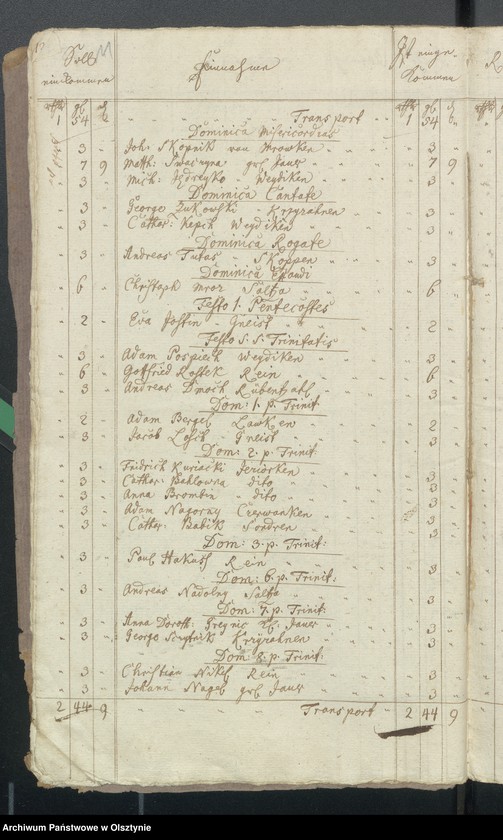 Soll einkommen
Einnahme
Ist einge-
kommen
1 54 6 Transport 1 54 6
Dominica Misericordias
3 Joh. Skopnik von Mrowken 3
7 9 Matth: grß Jauer 7 9
3 Mich: Weydiken 3
Dominica Cantate
3 George Zukowski Krzyzahnen 3
3 Cathar: Kepich Weydiken 3
Dominica Rogate
3 Andreas Skoppen 3
Dominica Exaudi
6 Christoph Mroz Salza 6
Festo 1. Pentecostes
2 Eva Gneist 2
Festo S. S. Trinitatis
3 Adam Pospiech Weydiken 3
6 Gottfried Rostek Rein 6
3 Andreas Dmoch Rübenzahl 3
Dom: 1. p. Trinit:
2 Adam Bergel Lawken 2
3 Jacob Losch Gneist 3
Dom: 2. p. Trinit:
3 Fridrich Kuriacki Jeziorken 3
3 Cathar: Bahlowna dito 3
3 Anna Brombin dito 3
3 Adam Nagorny Czerwanken 3
3 Cathar: Babik Sondren 3
Dom: 3. p. Trinit:
3 Paul Rein 3
Dom: 6. p. Trinit:
3 Andreas Nadolny Salza 3
Dom: 7. p. Trinit:
3 Anna Doroth: grß Jauer 3
3 George Krzyzahnen 3
Dom: 8. p. Trinit:
3 Christian Nikel Rein 3
3 Johann Nagel grß Jauer 3
2 44 9 Transport 2 44 9
Archiwum Państwowe w Olsztynie